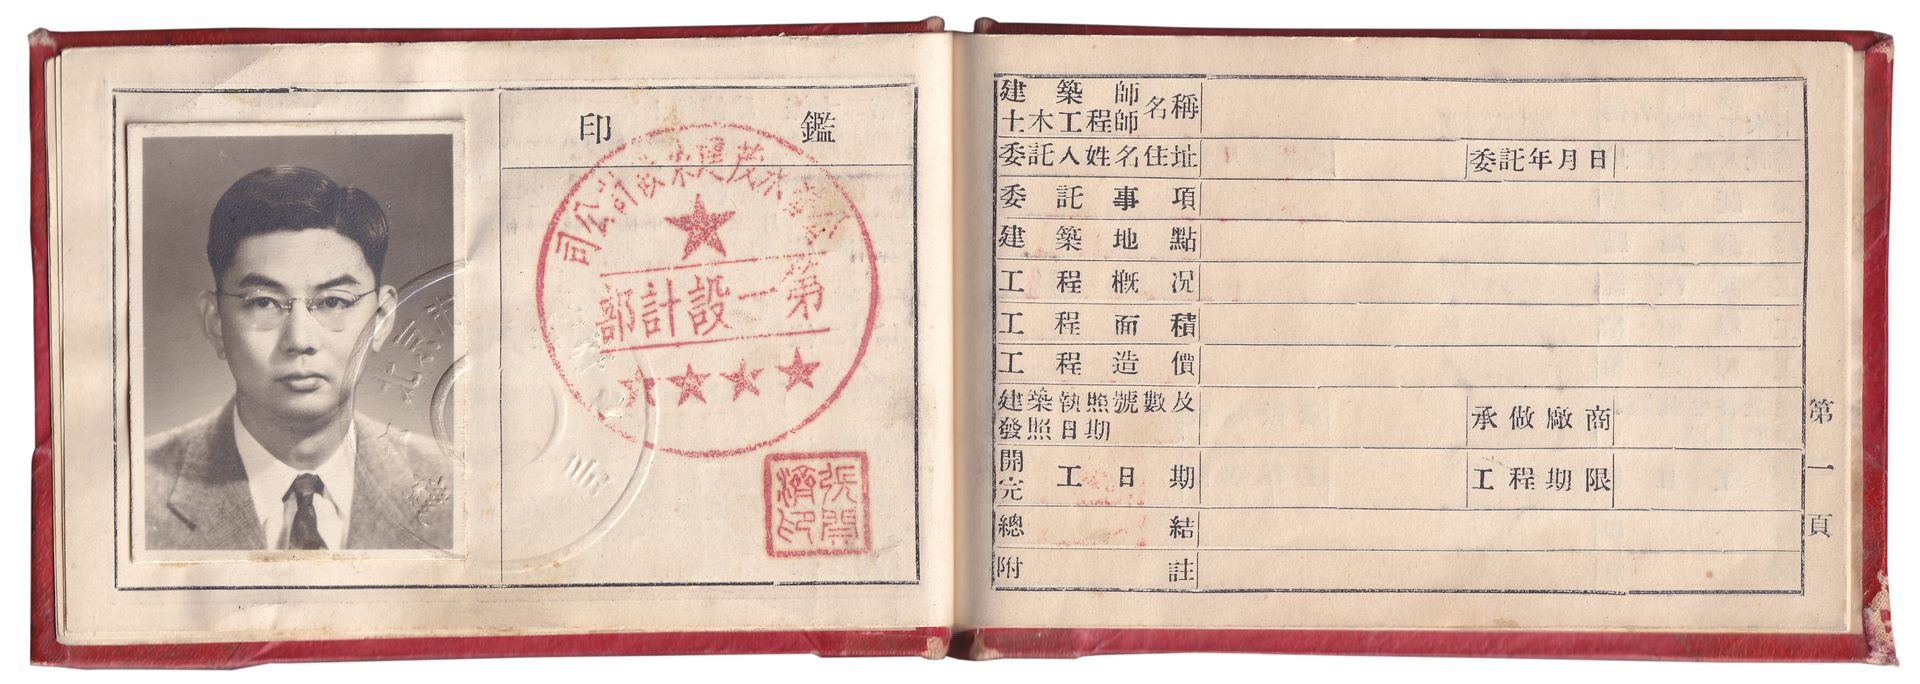 印鑑
公私合營永茂建築公司
第一設計部
張開濟印
北京市
建築師
土木工程師名稱
委託人姓名住址
委託年月日
委託事項
建築地點
工程概況
工程面積
工程造價
建築執照號數及
發照日期
承做廠商
開
完工日期
工程期限
總結
附註
第一頁